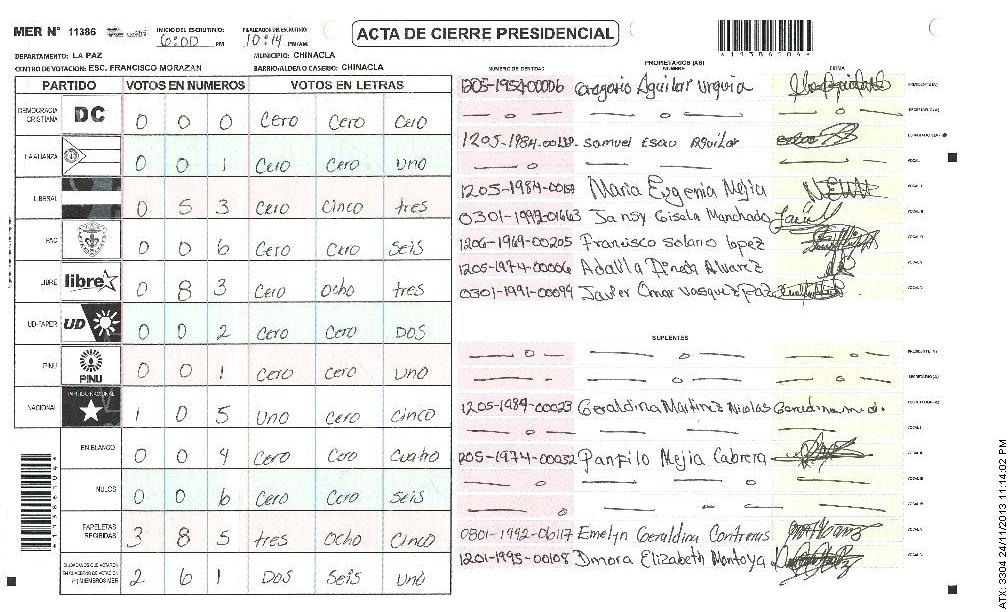 MER N° 11386
INICIO DEL ESCRUTINIO: 6:00 PM
FINALIZACION DEL ESCRUTINIO: 10:14 PM/AM
ACTA DE CIERRE PRESIDENCIAL
A11386106A
DEPARTAMENTO: LA PAZ
MUNICIPIO: CHINACLA
CENTRO DE VOTACION: ESC. FRANCISCO MORAZAN
BARRIO/ALDEA O CASERIO: CHINACLA
PARTIDO VOTOS EN NUMEROS VOTOS EN LETRAS
DEMOCRACIA CRISTIANA DC 0 0 0 Cero Cero Cero
LA ALIANZA 0 0 1 Cero Cero uno
LIBERAL 0 5 3 Cero Cinco tres
PAC 0 0 6 Cero Cero Seis
LIBRE libre 0 8 3 Cero Ocho tres
UD-FAPER UD 0 0 2 Cero Cero DOS
PINU PINU 0 0 1 Cero Cero uno
NACIONAL PARTIDO NACIONAL 1 0 5 Uno Cero Cinco
EN BLANCO 0 0 4 Cero Cero Cuatro
NULOS 0 0 6 Cero Cero Seis
PAPELETAS RECIBIDAS 3 8 5 tres Ocho Cinco
CIUDADANOS QUE VOTARON EN CUADERNO DE VOTACION (*) MIEMBROS MER 2 6 1 DOS Seis Uno
PROPIETARIOS (AS)
NUMERO DE IDENTIDAD NOMBRE FIRMA
1205-1954-00006 Gregorio Aguilar Urquia PRESIDENTE (A)
— o — — o — — o — SECRETARIO (A)
1205-1984-00138 Samuel Esau Aguilar
— o —
1205-1984-00157 Maria Eugenia Mejia
0301-1992-01663 Jansy Gisela Manchado
1206-1969-00205 Francisco Solano lopez
1205-1974-00006 Adalila Pineda Alvarez
0301-1991-00094 Javier Omar Vasquez Paz
SUPLENTES
— o — — o — — o — PRESIDENTE (A)
— o — — o — — o — SECRETARIO (A)
1205-1989-00023 Geraldina Martinez Nicolas
— o —
1205-1974-00032 Panfilo Mejia Cabrera
— o — — o —
— o —
0801-1992-06117 Emelyn Geraldina Contreras
1201-1995-00108 Dinora Elizabeth Montoya
ATX: 3304 24/11/2013 11:14:02 PM